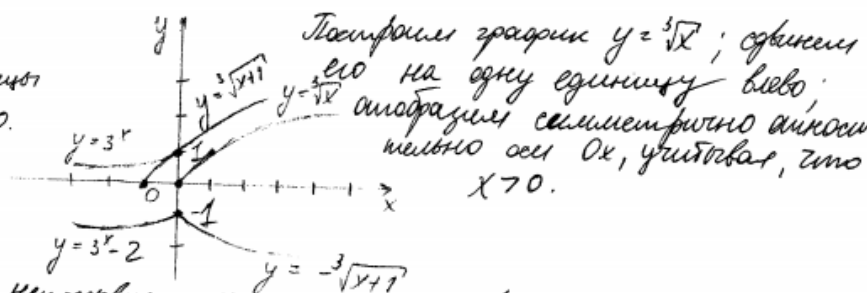 y
Построим график y = ∛x ; сдвинем
его на одну единицу влево;
отобразим симметрично относи
тельно оси Ox, учитывая, что
x > 0.
ицы
0.
y = ∛(x+1)
y = ∛x
y = 3ˣ
1
0
x
-1
y = 3ˣ - 2
y = -∛(x+1)